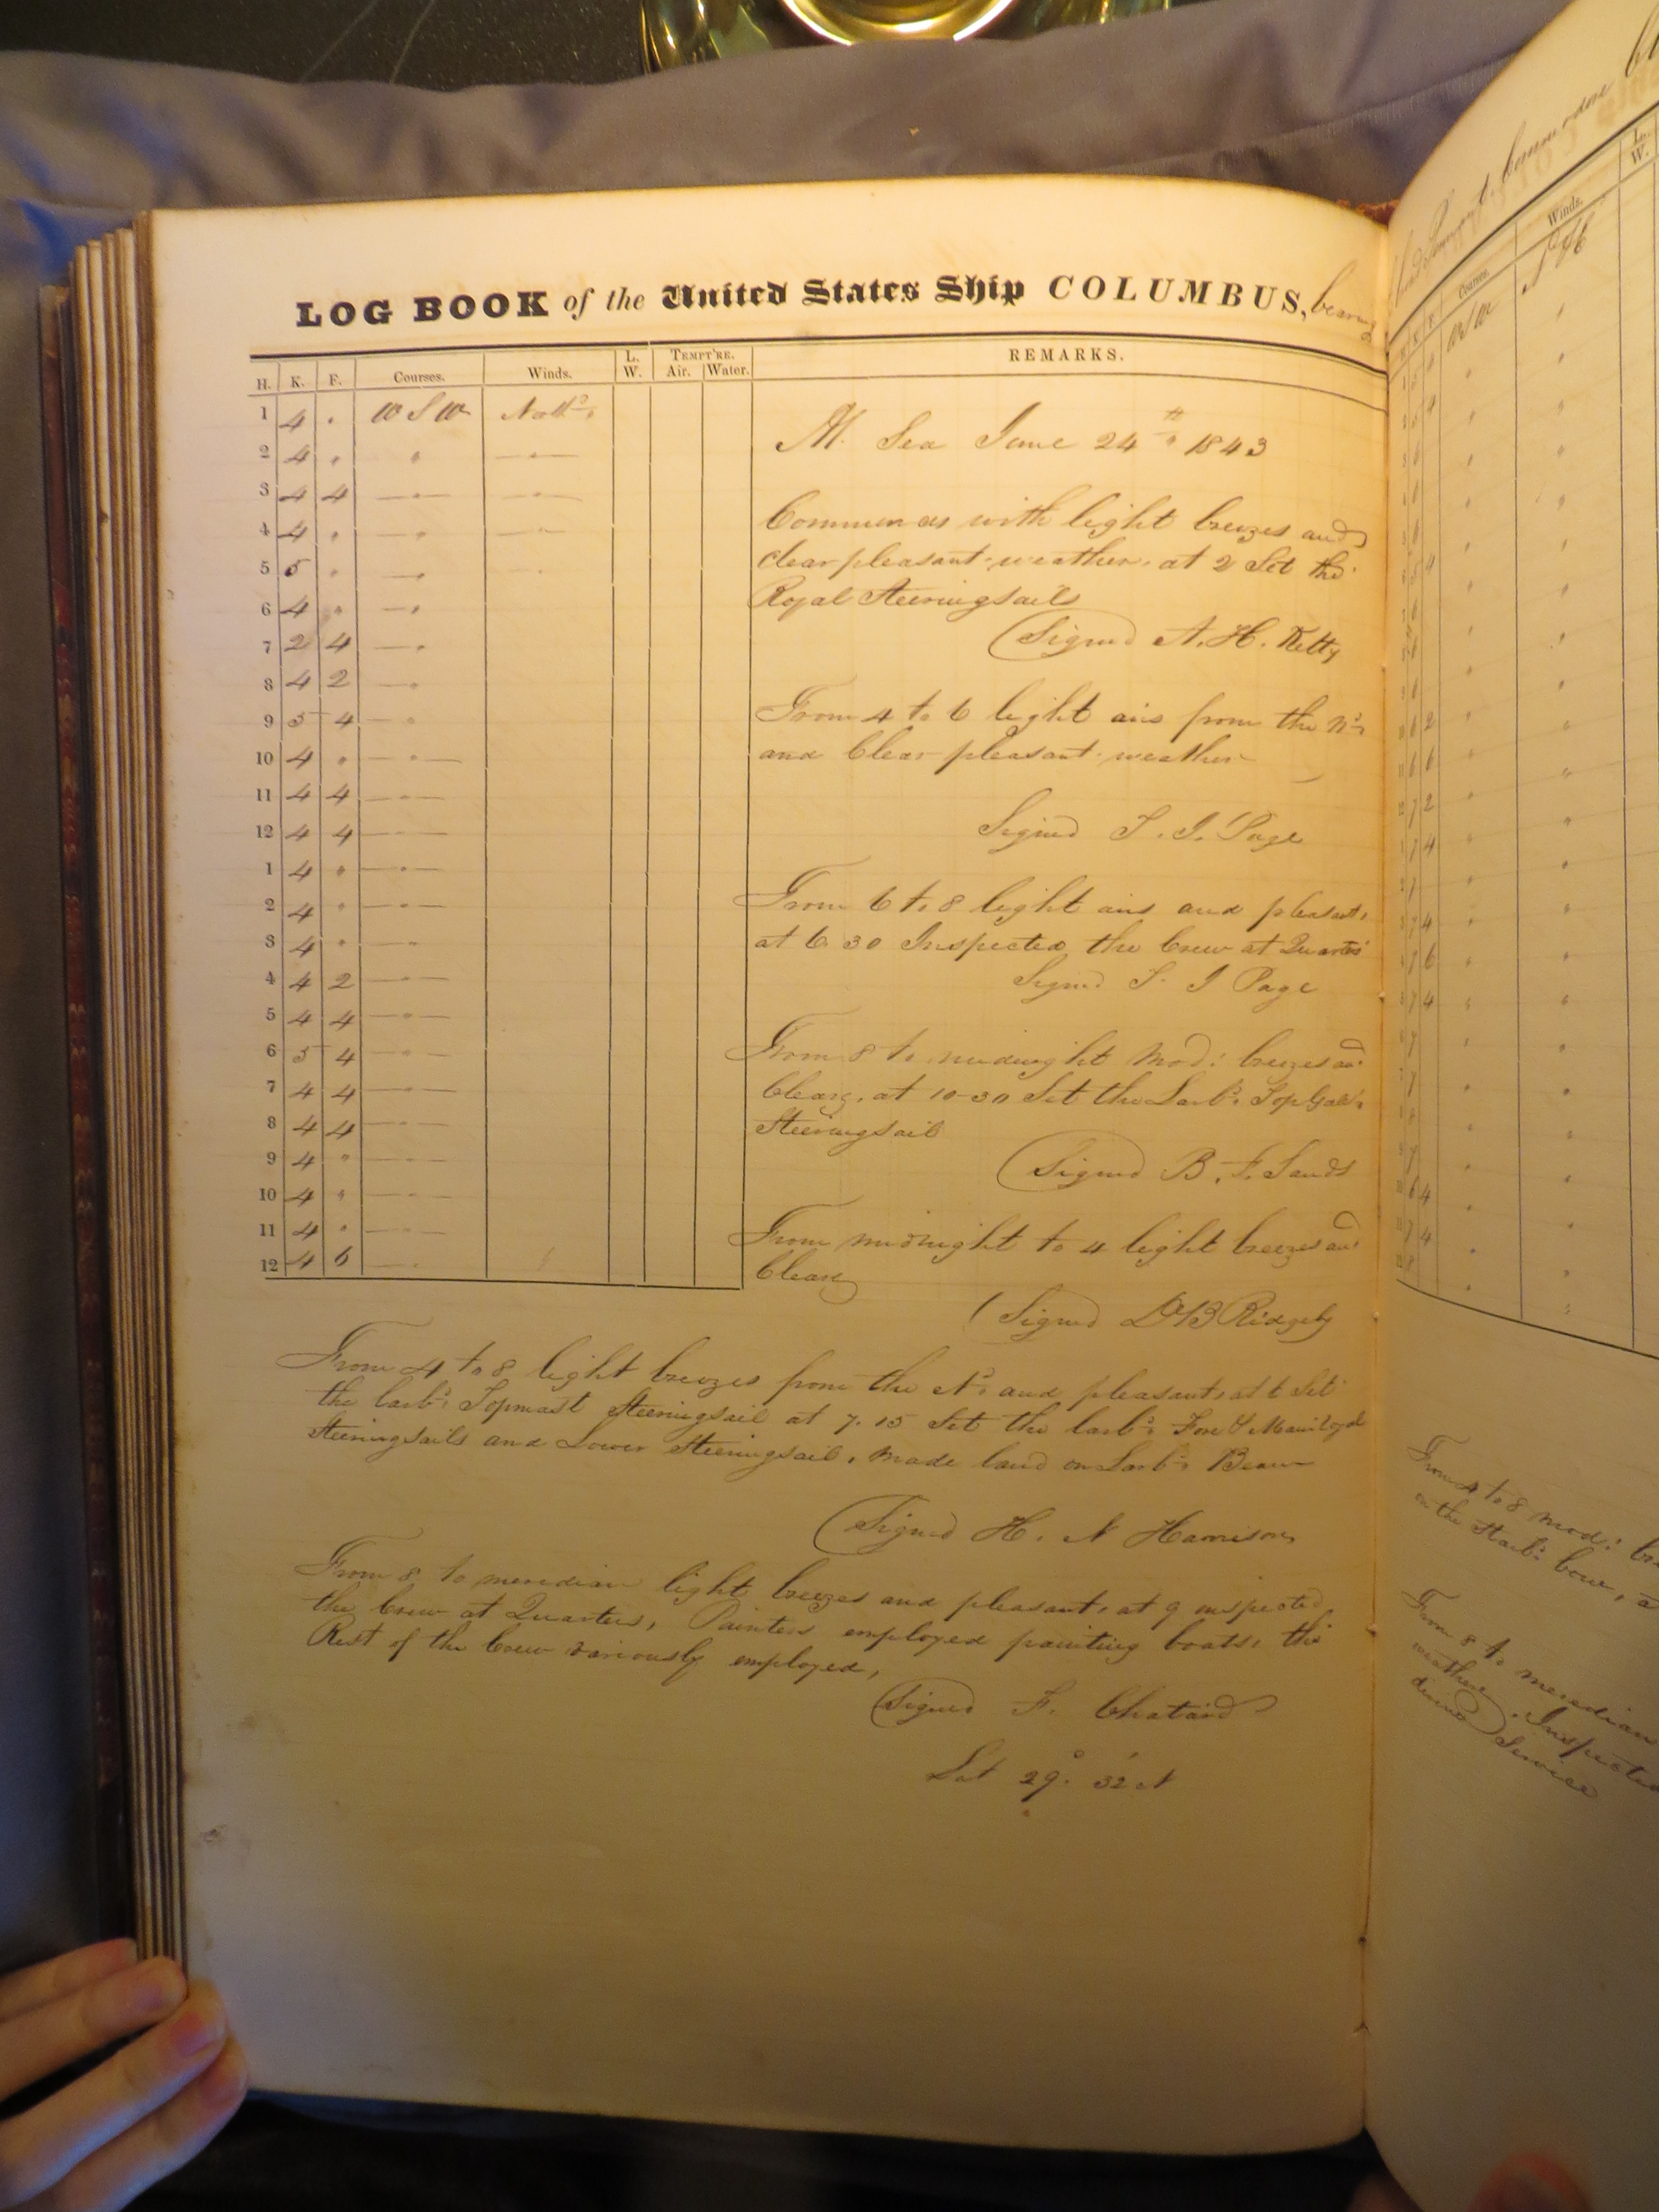 LOG BOOK of the United States Ship COLUMBUS, bearing
H. K. F. Courses. Winds. L. W. TEMPT'RE. Air. Water. REMARKS.
1 4 . W S W North:d
2 4 . . .
3 4 4 . .
4 4 . . .
5 5 . .
6 4 . .
7 2 4 .
8 4 2 .
9 5 4 .
10 4 . .
11 4 4 .
12 4 4 .
1 4 . .
2 4 . .
3 4 . .
4 4 2 .
5 4 4 .
6 5 4 .
7 4 4 .
8 4 4 .
9 4 . .
10 4 . .
11 4 . .
12 4 6 .
At Sea June 24th 1843
Commences with light breezes and
clear pleasant weather. at 2 Set the
Royal Steeringsails
(Signed A. H. Kelty
From 4 to 6 light airs from the N:d
and Clear pleasant weather
Signed T. J. Page
From 6 to 8 light airs and pleasant,
at 6 30 Inspected the Crew at Quarters
Signed T. J Page
From 8 to midnight Mod: breezes and
Clear, at 10-30 Set the Larb:d Top Gall:t
Steeringsail
(Signed B. F. Sands
From midnight to 4 light breezes and
Clear
(Signed D B Ridgely
From 4 to 8 light breezes from the N:d and pleasant, at 6 Set
the larb:d Topmast Steeringsail at 7.15 Set the larb:d Fore & Main Royal
Steeringsails and Lower Steeringsail, made land on Larb:d Beam
(Signed H. N Harrison
From 8 to meridian light breezes and pleasant, at 9 inspected
the Crew at Quarters, Painters employed painting boats, the
Rest of the Crew variously employed,
(Signed F. Chatard
Lat 29° 32' N
Courses. Winds. L. W.
WSW
From 4 to 8 mod:
on the Starb:d bow, a
From 8 to meridian
weather. Inspected
divine Service